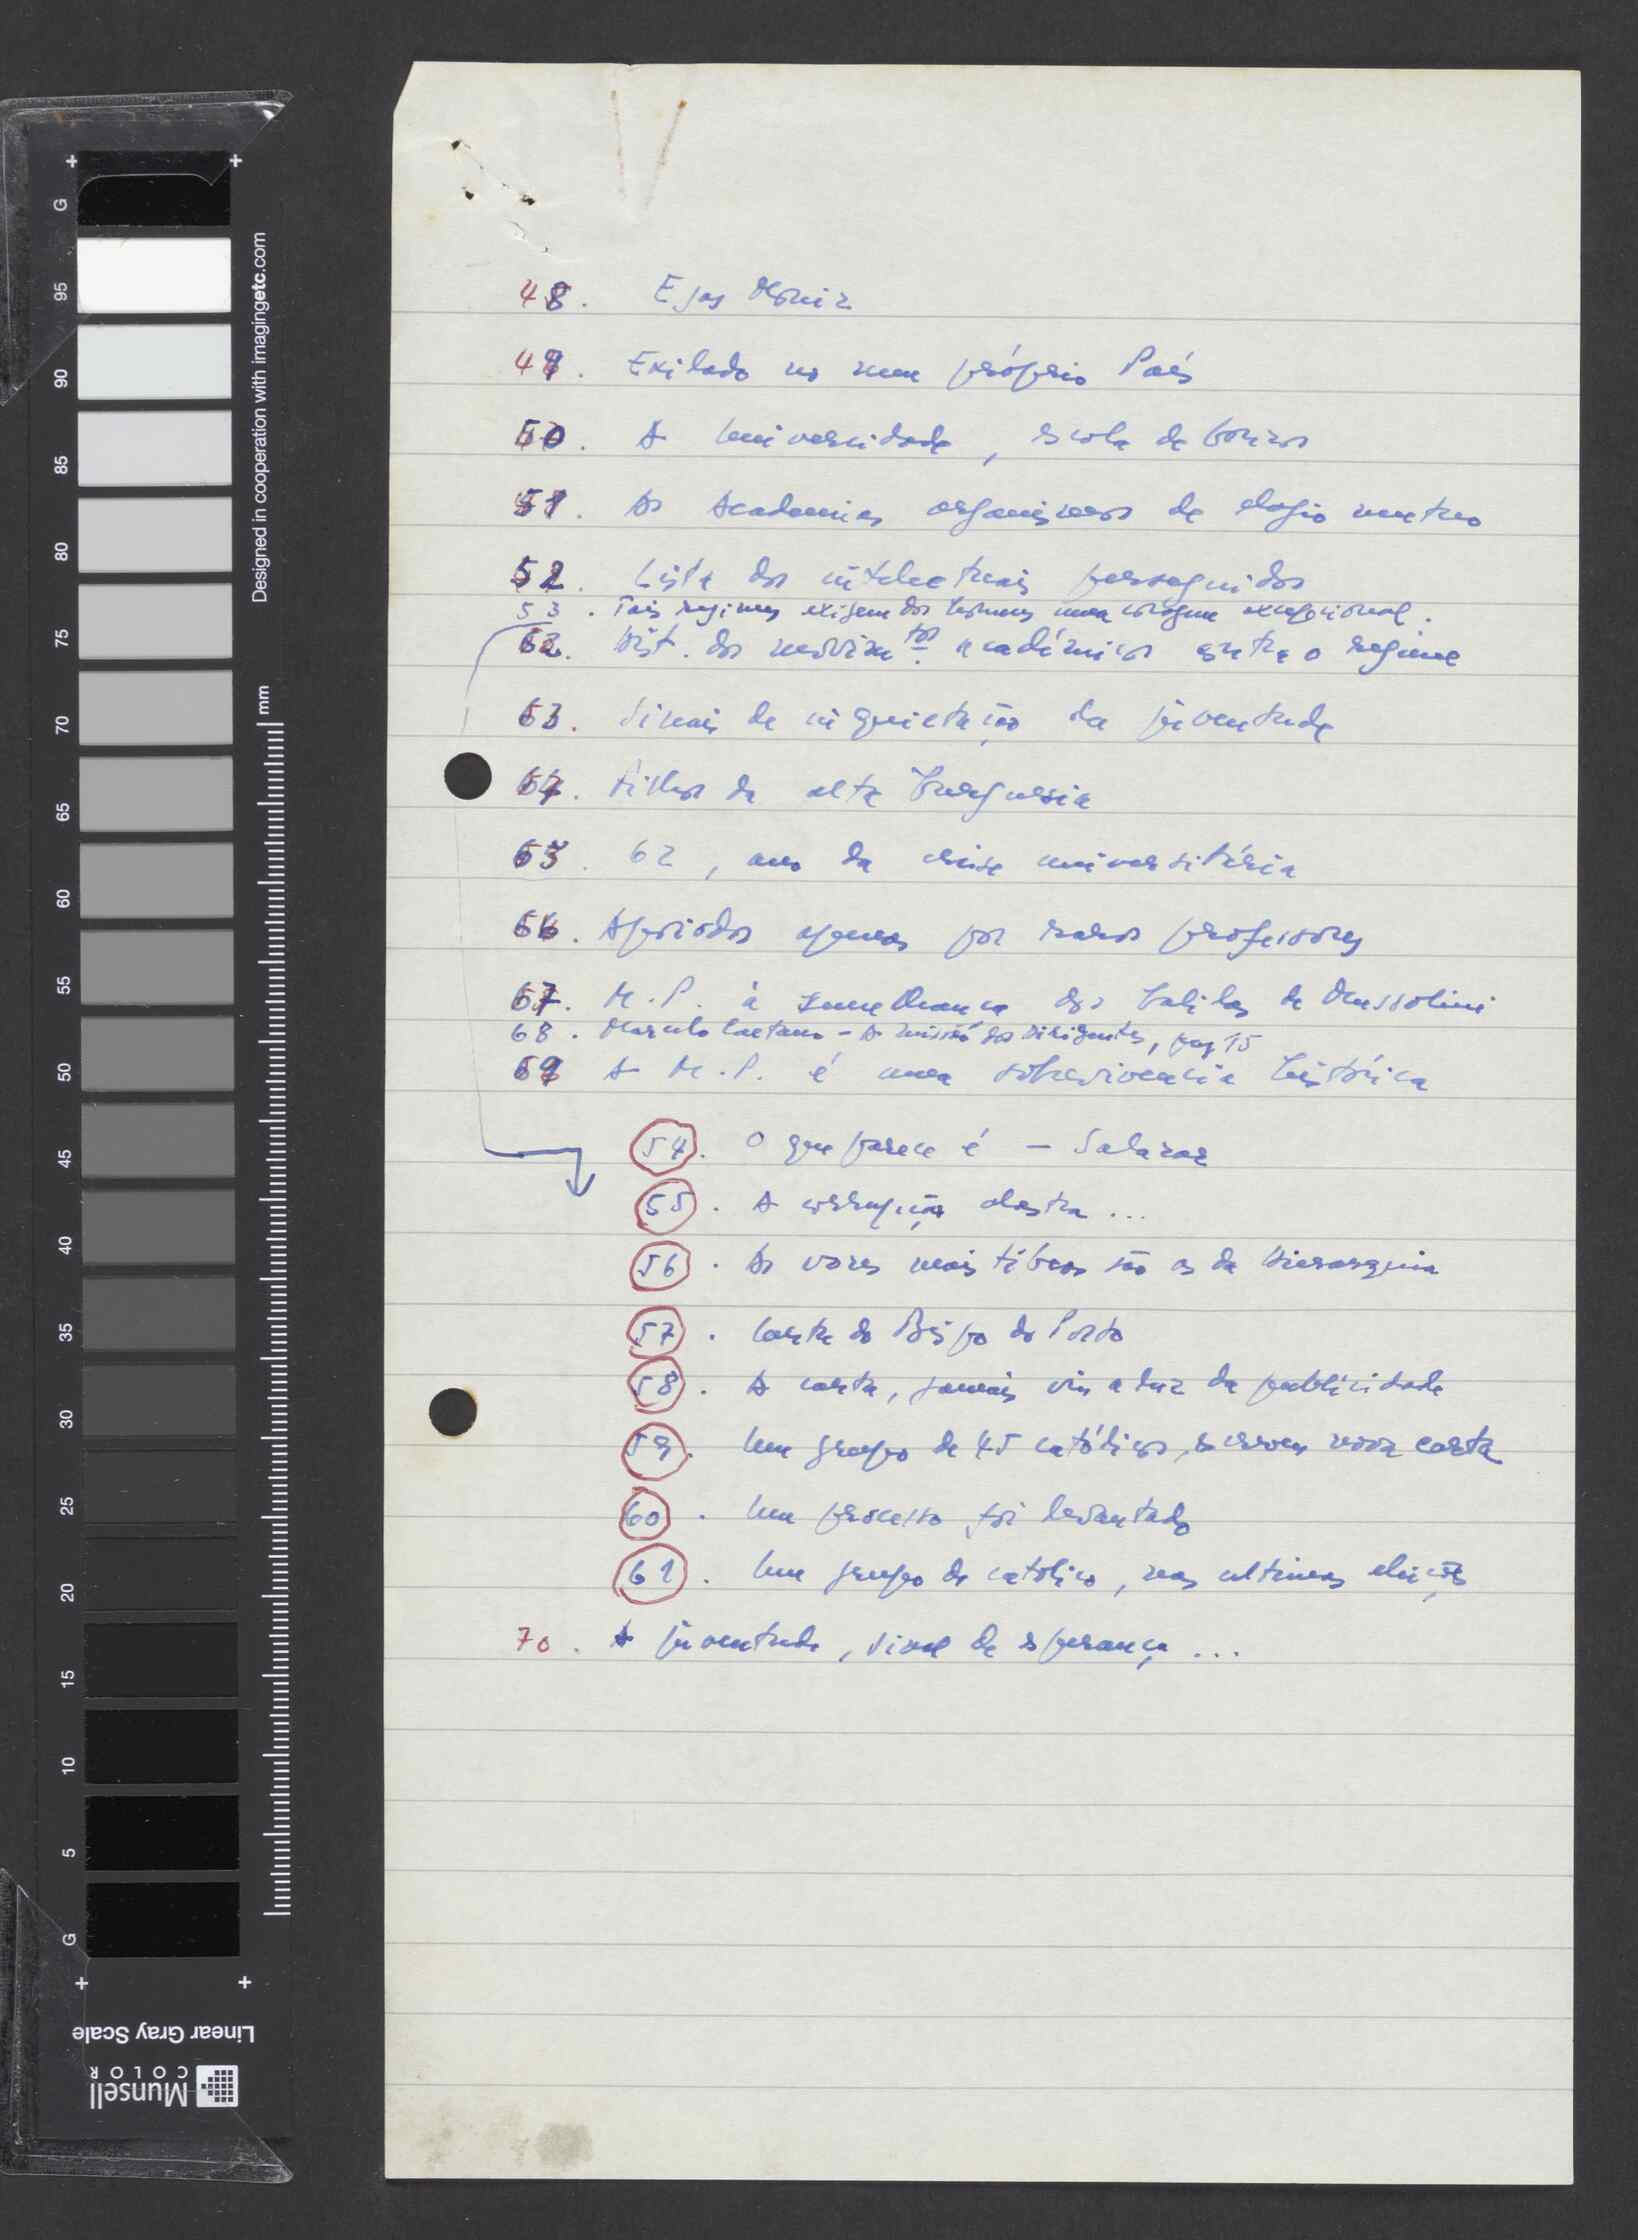 48. Egas Moniz
49. Exilado no seu próprio País
50. A Universidade, escola de bonzos
51. As Academias organismos de elogio mutuo
52. Lista dos intelectuais perseguidos
53. Tais regimes exigem dos homens uma coragem excepcional.
62. Hist. dos movimen.tos académicos contra o regime
63. Sinais de inquietação da juventude
64. Filhos da alta burguesia
65. 62, ano da crise universitária
66. Apoiados apenas por raros professores
67. M.P. à semelhança dos balilas de Mussolini
68. Marcelo Caetano - A missão dos dirigentes, pag 15
69 A M.P. é uma sobrevivencia histórica
54. O que parece é - Salazar
55. A corrupção alastra...
56. As vozes mais tíbias são as da Hierarquia
57. Carta do Bispo do Porto
58. A carta, jamais viu a luz da publicidade
59. Um grupo de 45 católicos, escreveu nova carta
60. Um processo foi levantado
61. Um grupo de católico, nas ultimas eleições
70. A juventude, sinal de esperança...
Designed in cooperation with imagingetc.com
mm
G 95 90 85 80 75 70 65 60 55 50 45 40 35 30 25 20 15 10 5 G
Linear Gray Scale
Munsell
COLOR